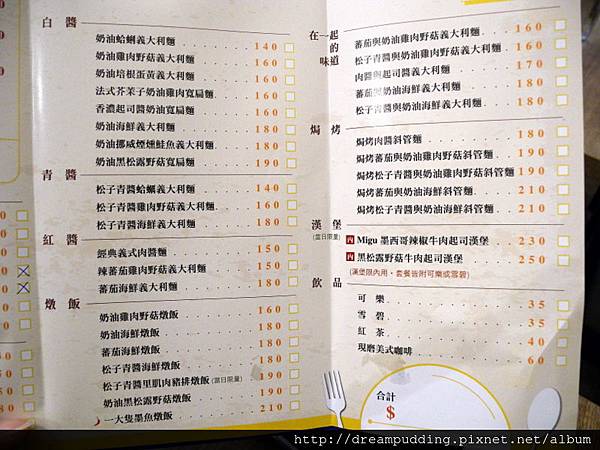 白醬
奶油蛤蜊義大利麵 140
奶油雞肉野菇義大利麵 160
奶油培根蛋黃義大利麵 160
法式芥茉子奶油雞肉寬扁麵 160
香濃起司醬奶油寬扁麵 160
奶油海鮮義大利麵 180
奶油挪威煙燻鮭魚義大利麵 180
奶油黑松露野菇寬扁麵 190
青醬
松子青醬蛤蠣義大利麵 140
松子青醬雞肉野菇義大利麵 160
松子青醬海鮮義大利麵 180
紅醬
經典義式肉醬麵 150
辣蕃茄雞肉野菇義大利麵 150
蕃茄海鮮義大利麵 180
燉飯
奶油雞肉野菇燉飯 160
奶油海鮮燉飯 180
蕃茄海鮮燉飯 180
松子青醬海鮮燉飯 180
松子青醬里肌肉豬排燉飯(當日限量) 190
奶油黑松露野菇燉飯 190
一大隻墨魚燉飯 210
在一起的味道
蕃茄與奶油雞肉野菇義大利麵 160
松子青醬與奶油雞肉野菇義大利麵 160
肉醬與起司醬義大利麵 170
蕃茄與奶油海鮮義大利麵 180
松子青醬與奶油海鮮義大利麵 180
焗烤
焗烤肉醬斜管麵 180
焗烤蕃茄與奶油雞肉野菇斜管麵 190
焗烤松子青醬與奶油雞肉野菇斜管麵 190
焗烤蕃茄與奶油海鮮斜管麵 210
焗烤松子青醬與奶油海鮮斜管麵 210
漢堡
(當日限量)
Migu 墨西哥辣椒牛肉起司漢堡 230
黑松露野菇牛肉起司漢堡 250
(漢堡限內用、套餐皆附可樂或雪碧)
飲品
可樂 35
雪碧 35
紅茶 40
現磨美式咖啡 60
合計
$
http://dreampudding.pixnet.net/album